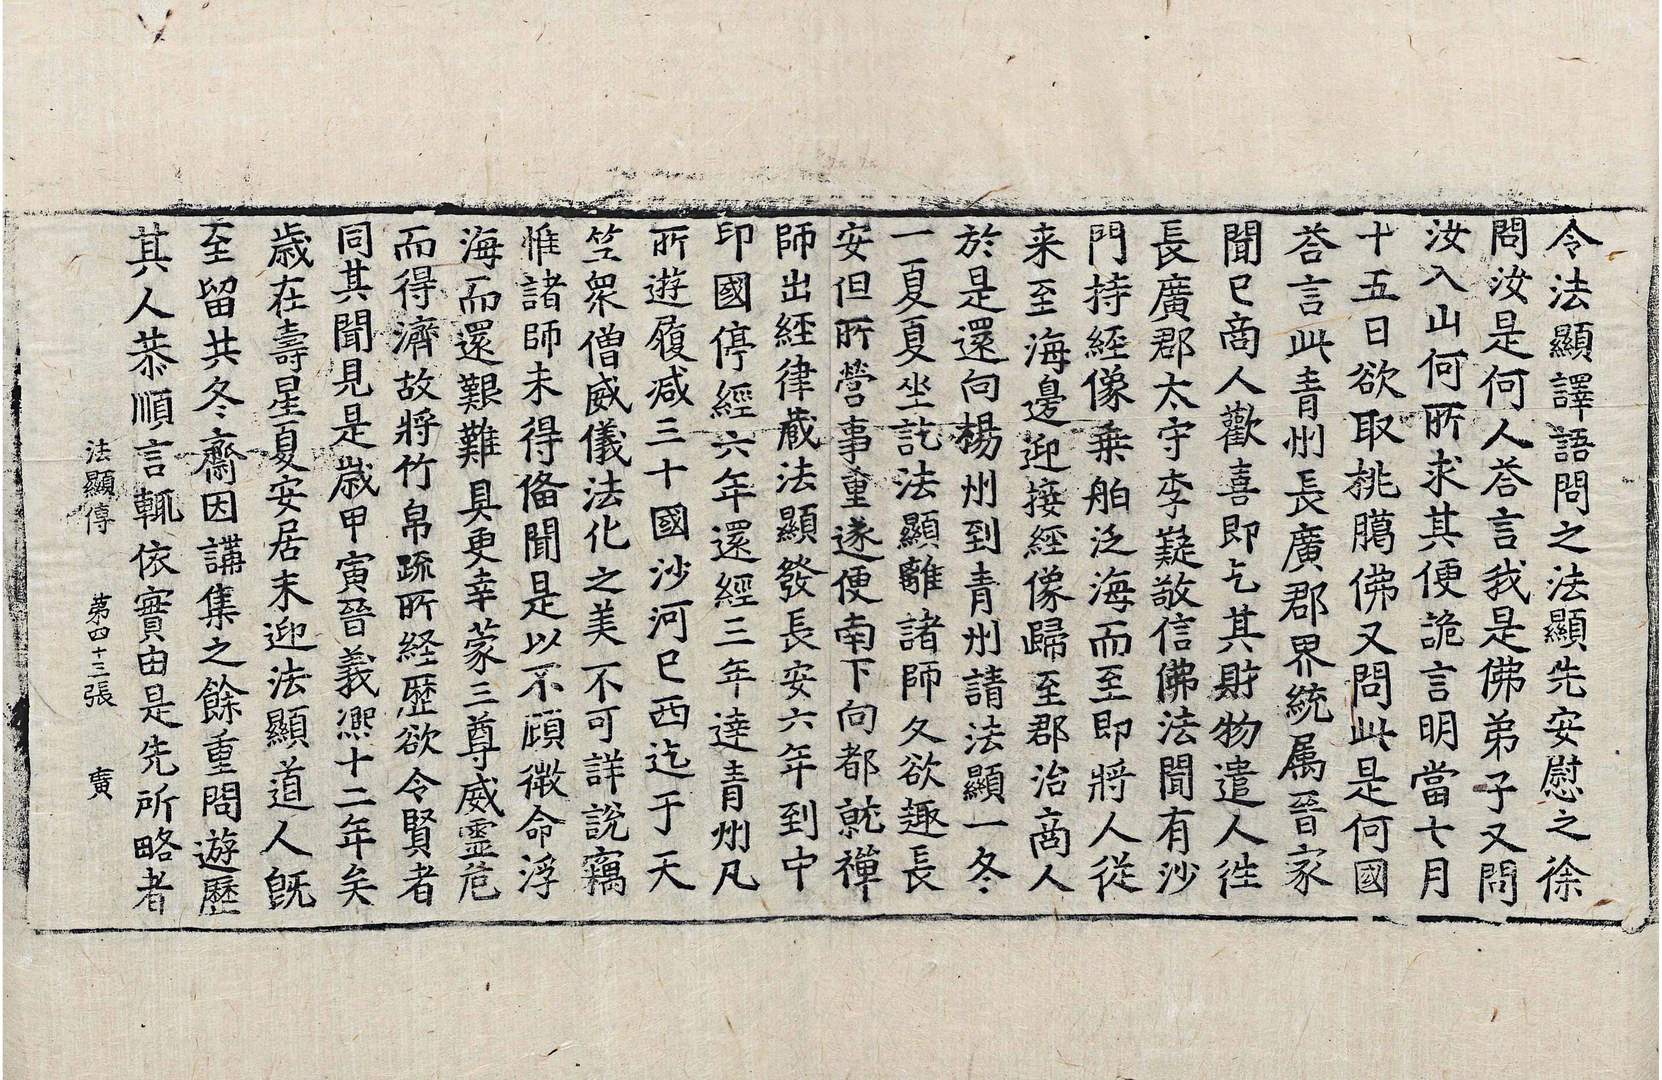 令法顯譯語問之法顯先安慰之徐
問汝是何人荅言我是佛弟子又問
汝入山何所求其便詭言明當七月
十五日欲取桃臈佛又問此是何國
荅言此青州長廣郡界統属晉家
聞已商人歡喜即乞其財物遣人往
長廣郡太守李嶷敬信佛法聞有沙
門持経像乗舶泛海而至即將人従
来至海邊迎接經像歸至郡治商人
於是還向楊州到青州請法顯一冬
一夏夏坐訖法顯離諸師久欲趣長
安但所營事重遂便南下向都就禪
師出経律藏法顯發長安六年到中
印國停經六年還經三年達青州凡
所遊履减三十國沙河已西迄于天
竺衆僧威儀法化之美不可詳說竊
惟諸師未得俻聞是以不顧微命浮
海而還艱難具更幸蒙三尊威霊危
而得濟故將竹帛疏所経歷欲令賢者
同其聞見是歲甲寅晉義凞十二年矣
歲在壽星夏安居末迎法顯道人旣
至留共冬齋因講集之餘重問遊歷
其人恭順言輒依實由是先所略者
法顯傳 第四十三張 廣